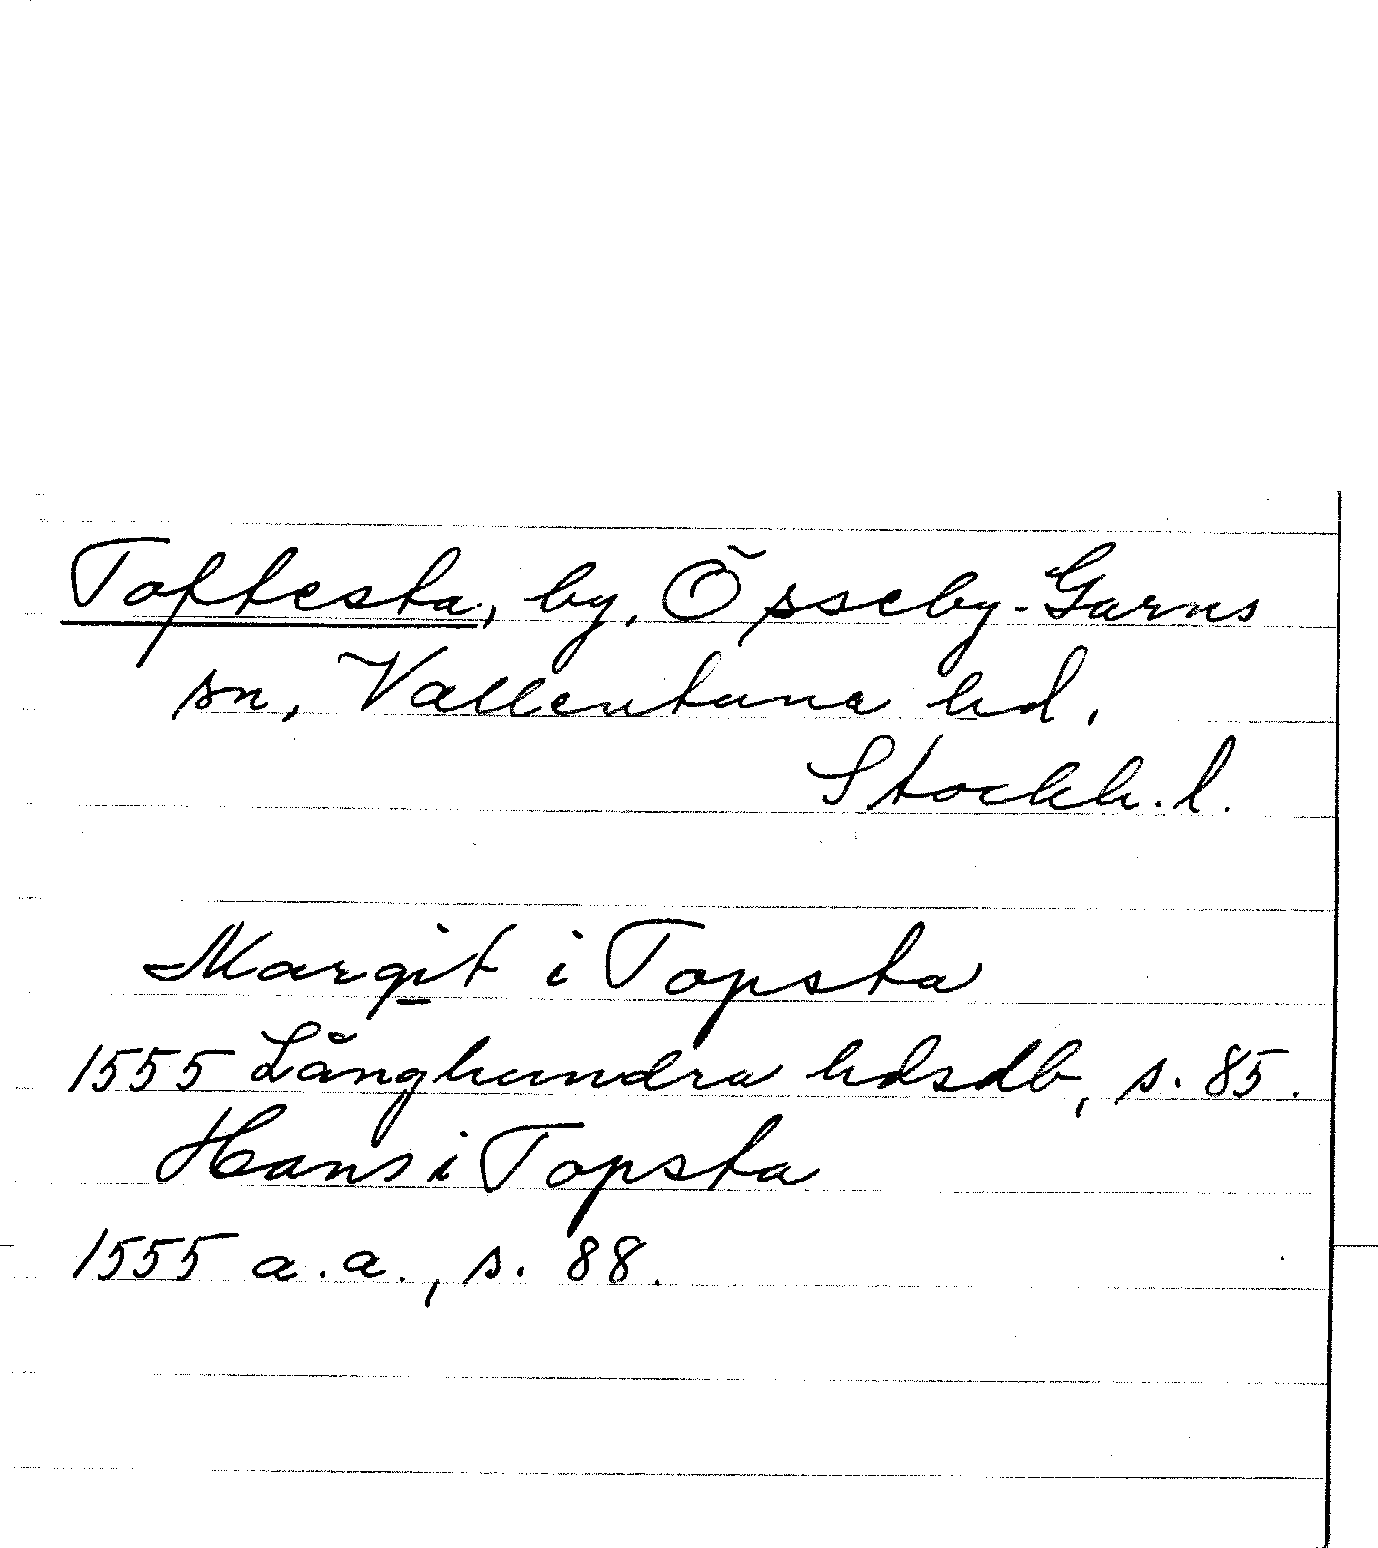 Toftesta, by, Össeby-Garns
sn, Vallentuna hd,
Stockh. l.
Margit i Topsta
1555 Långhundra hdsdb, s. 85.
Hans i Topsta
1555 a.a., s. 88.